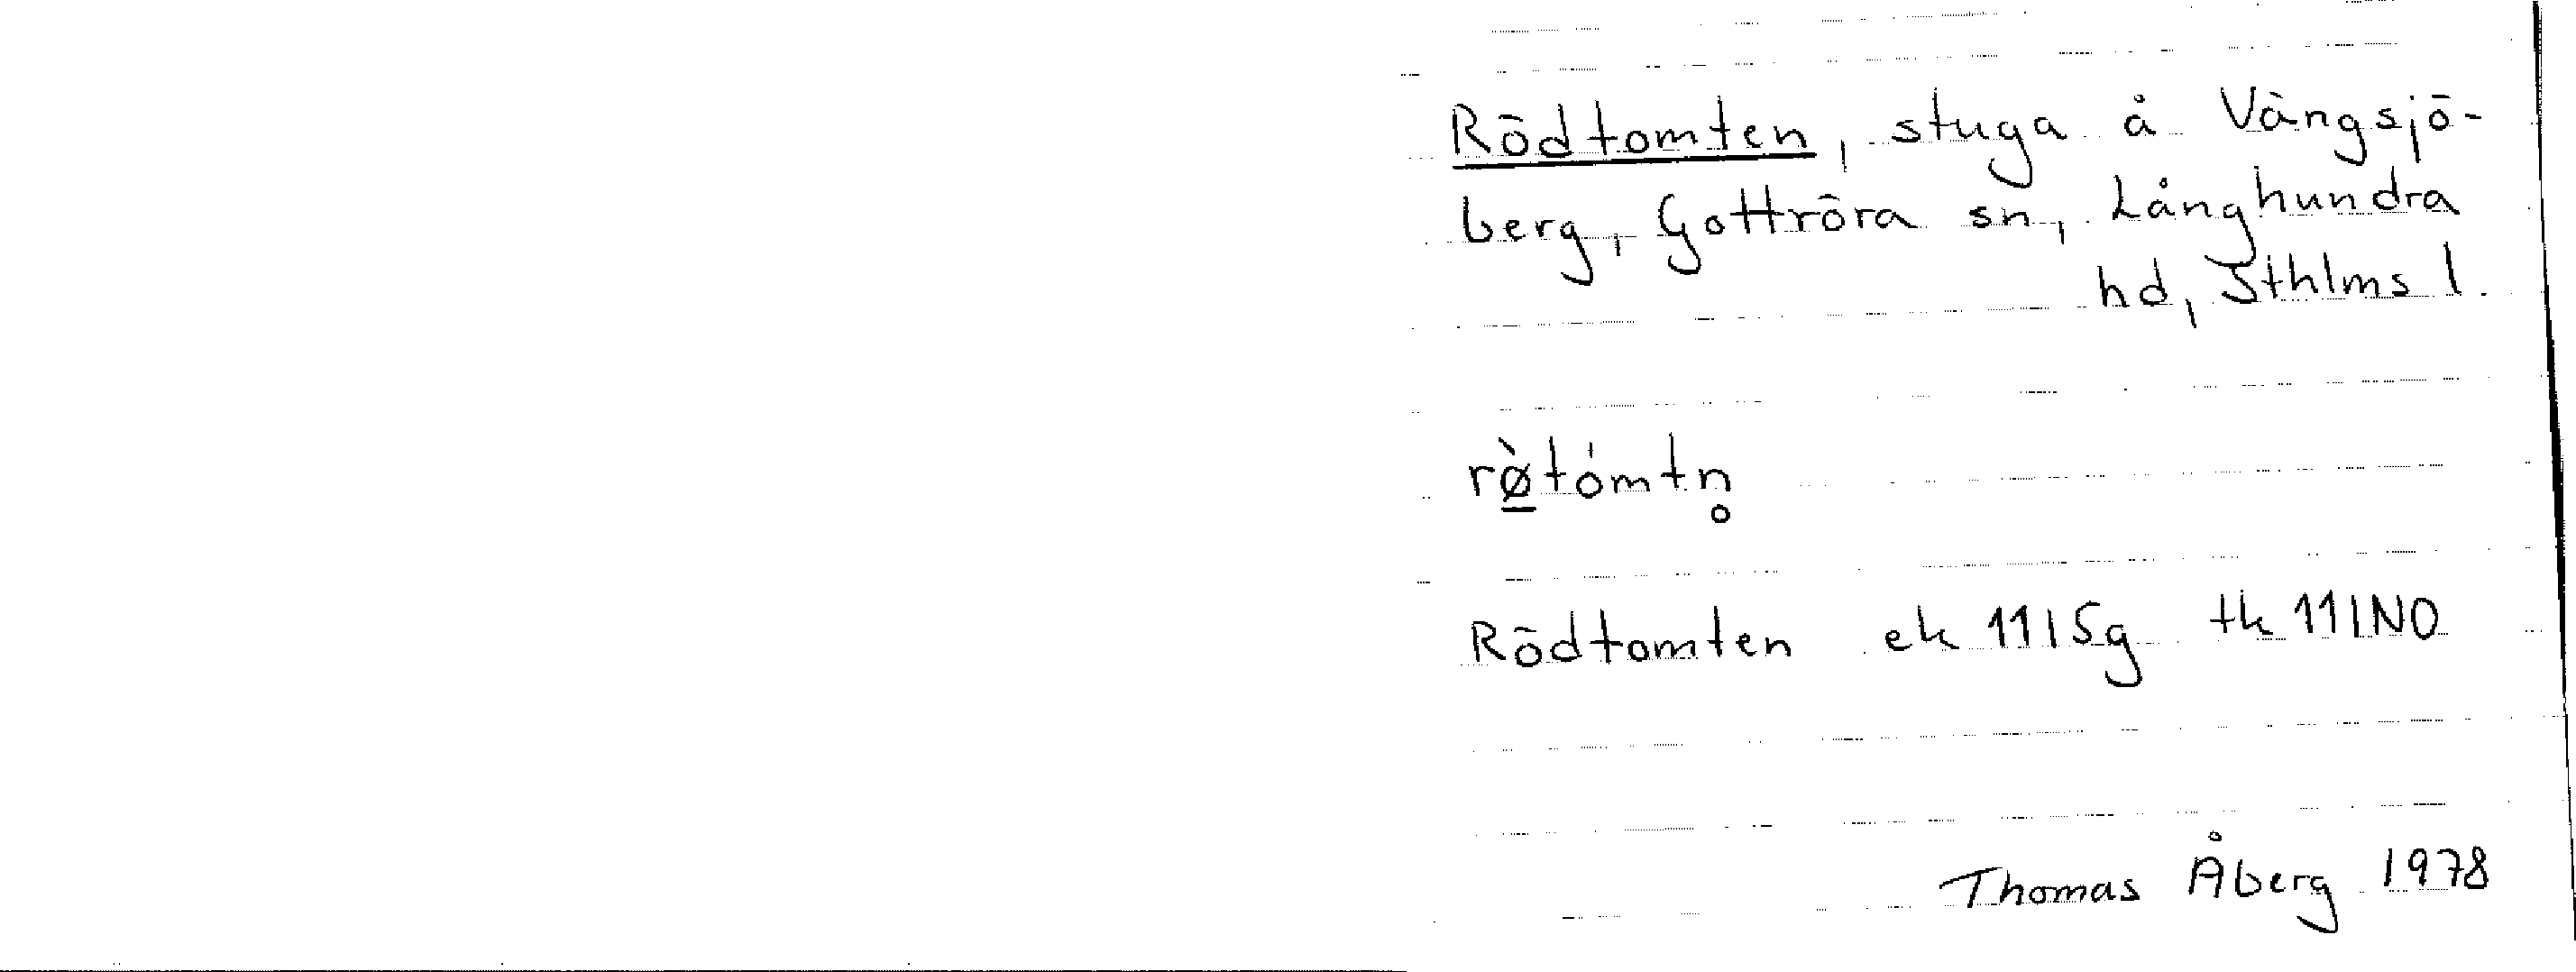 Rödtomten, stuga å Vängsjö-
berg, Gottröra sn, Långhundra
hd, Sthlms l.
rø̀tómtn̥
Rödtomten ek 11I5g tk 11INO
Thomas Åberg 1978